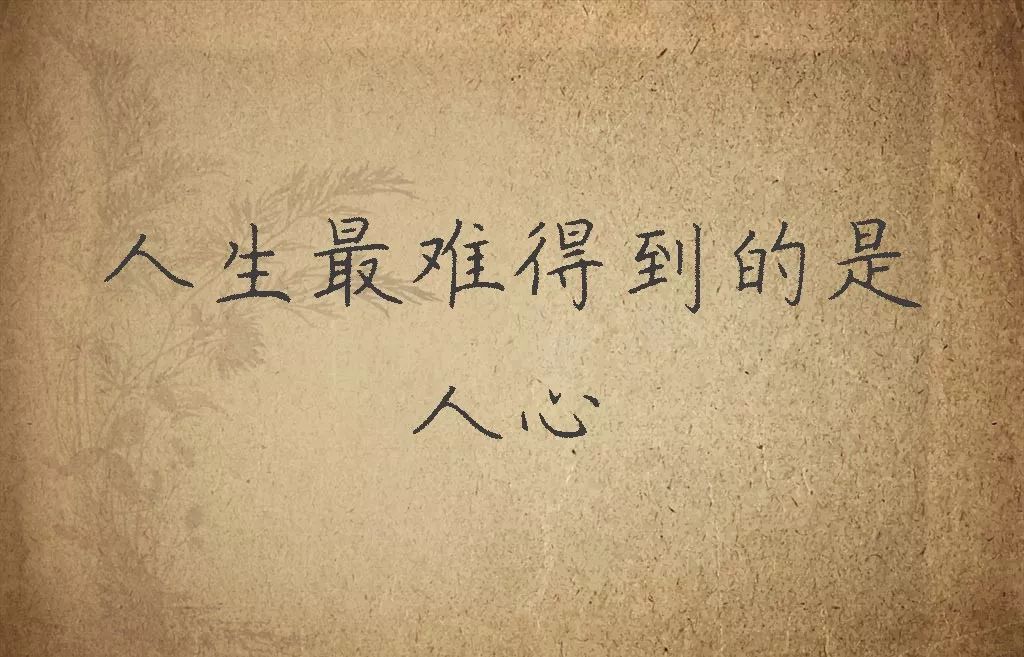 人生最难得到的是
人心